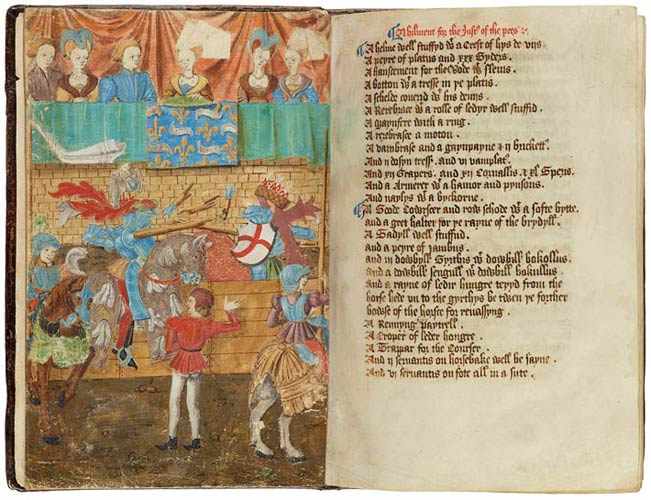 Abilment for the Just of the pees
A helme well stuffyd wt a Crest of hys de viis
A peyre of platus and xxx Gyders
A hanscement for the Bode wt slevis
A botton wt a tresse in ye platis
A schelde couerid wt his deuys
A Rerebrace wt a rolle of ledyr well stuffid
A maynfere with a ring
A rerebrase a moton
A vambrase and a gaynpayne & ij bricketts
And ij dosyn tresses and vi vamplats
And xij Grapers and xij Cornallis & xl Speris
And a Armerer wt a hamor and pynsons
And naylys wt a byckorne
A Goode Cowrseer and row schode wt a softe bytte
and a gret halter for ye rayne of the brydyll
A Sadyll well stuffid
and a peyre of jambus
and iij dowbyll Gyrthis wt dowbill bokollus
and a dowbill sengull wt dowbill bokullus
and a rayne of ledir hungre teyyd from the
horse hede vn to the gyrthys be twen ye forther
bowse of the horse for reuassyng
A Rennyng paytrell
A Croper of leder hongre
A Trappar for the Courser
And ij servantis on horsebake well be sayne
And vj servantis on fote all in a sute